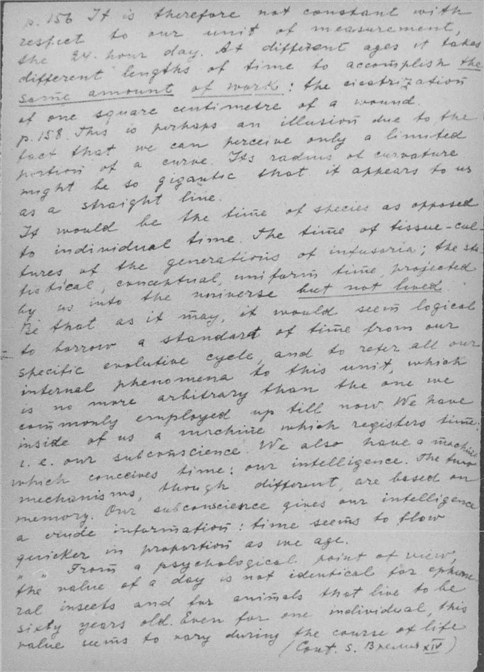 p. 156 It is therefore not constant with
respect to our unit of measurement,
the 24-hour day. At different ages it takes
different lengths of time to accomplish the
same amount of work: the cicatrization
of one square centimetre of a wound.
p. 158. This is perhaps an illusion due to the
fact that we can perceive only a limited
portion of a curve. Its radius of curvature
might be so gigantic that it appears to us
as a straight line.
It would be the time of species as opposed
to individual time. The time of tissue-cul-
tures of the generations of infusoria; the sta-
tistical, conceptual, uniform time, projected
by us into the universe but not lived.
Be that as it may, it would seem logical
to borrow a standard of time from our
specific evolutive cycle, and to refer all our
internal phenomena to this unit, which
is no more arbitrary than the one we
commonly employed up till now. We have
inside of us a machine which registers time:
i.e. our subconscience. We also have a machine
which conceives time: our intelligence. The two
mechanisms, though different, are based on
memory. Our subconscience gives our intelligence
a crude information: time seems to flow
quicker in proportion as we age.
" From a psychological point of view,
the value of a day is not identical for epheme
ral insects and for animals that live to be
sixty years old. Even for one individual, this
value seems to vary during the course of life
(Cont. S. XIV)